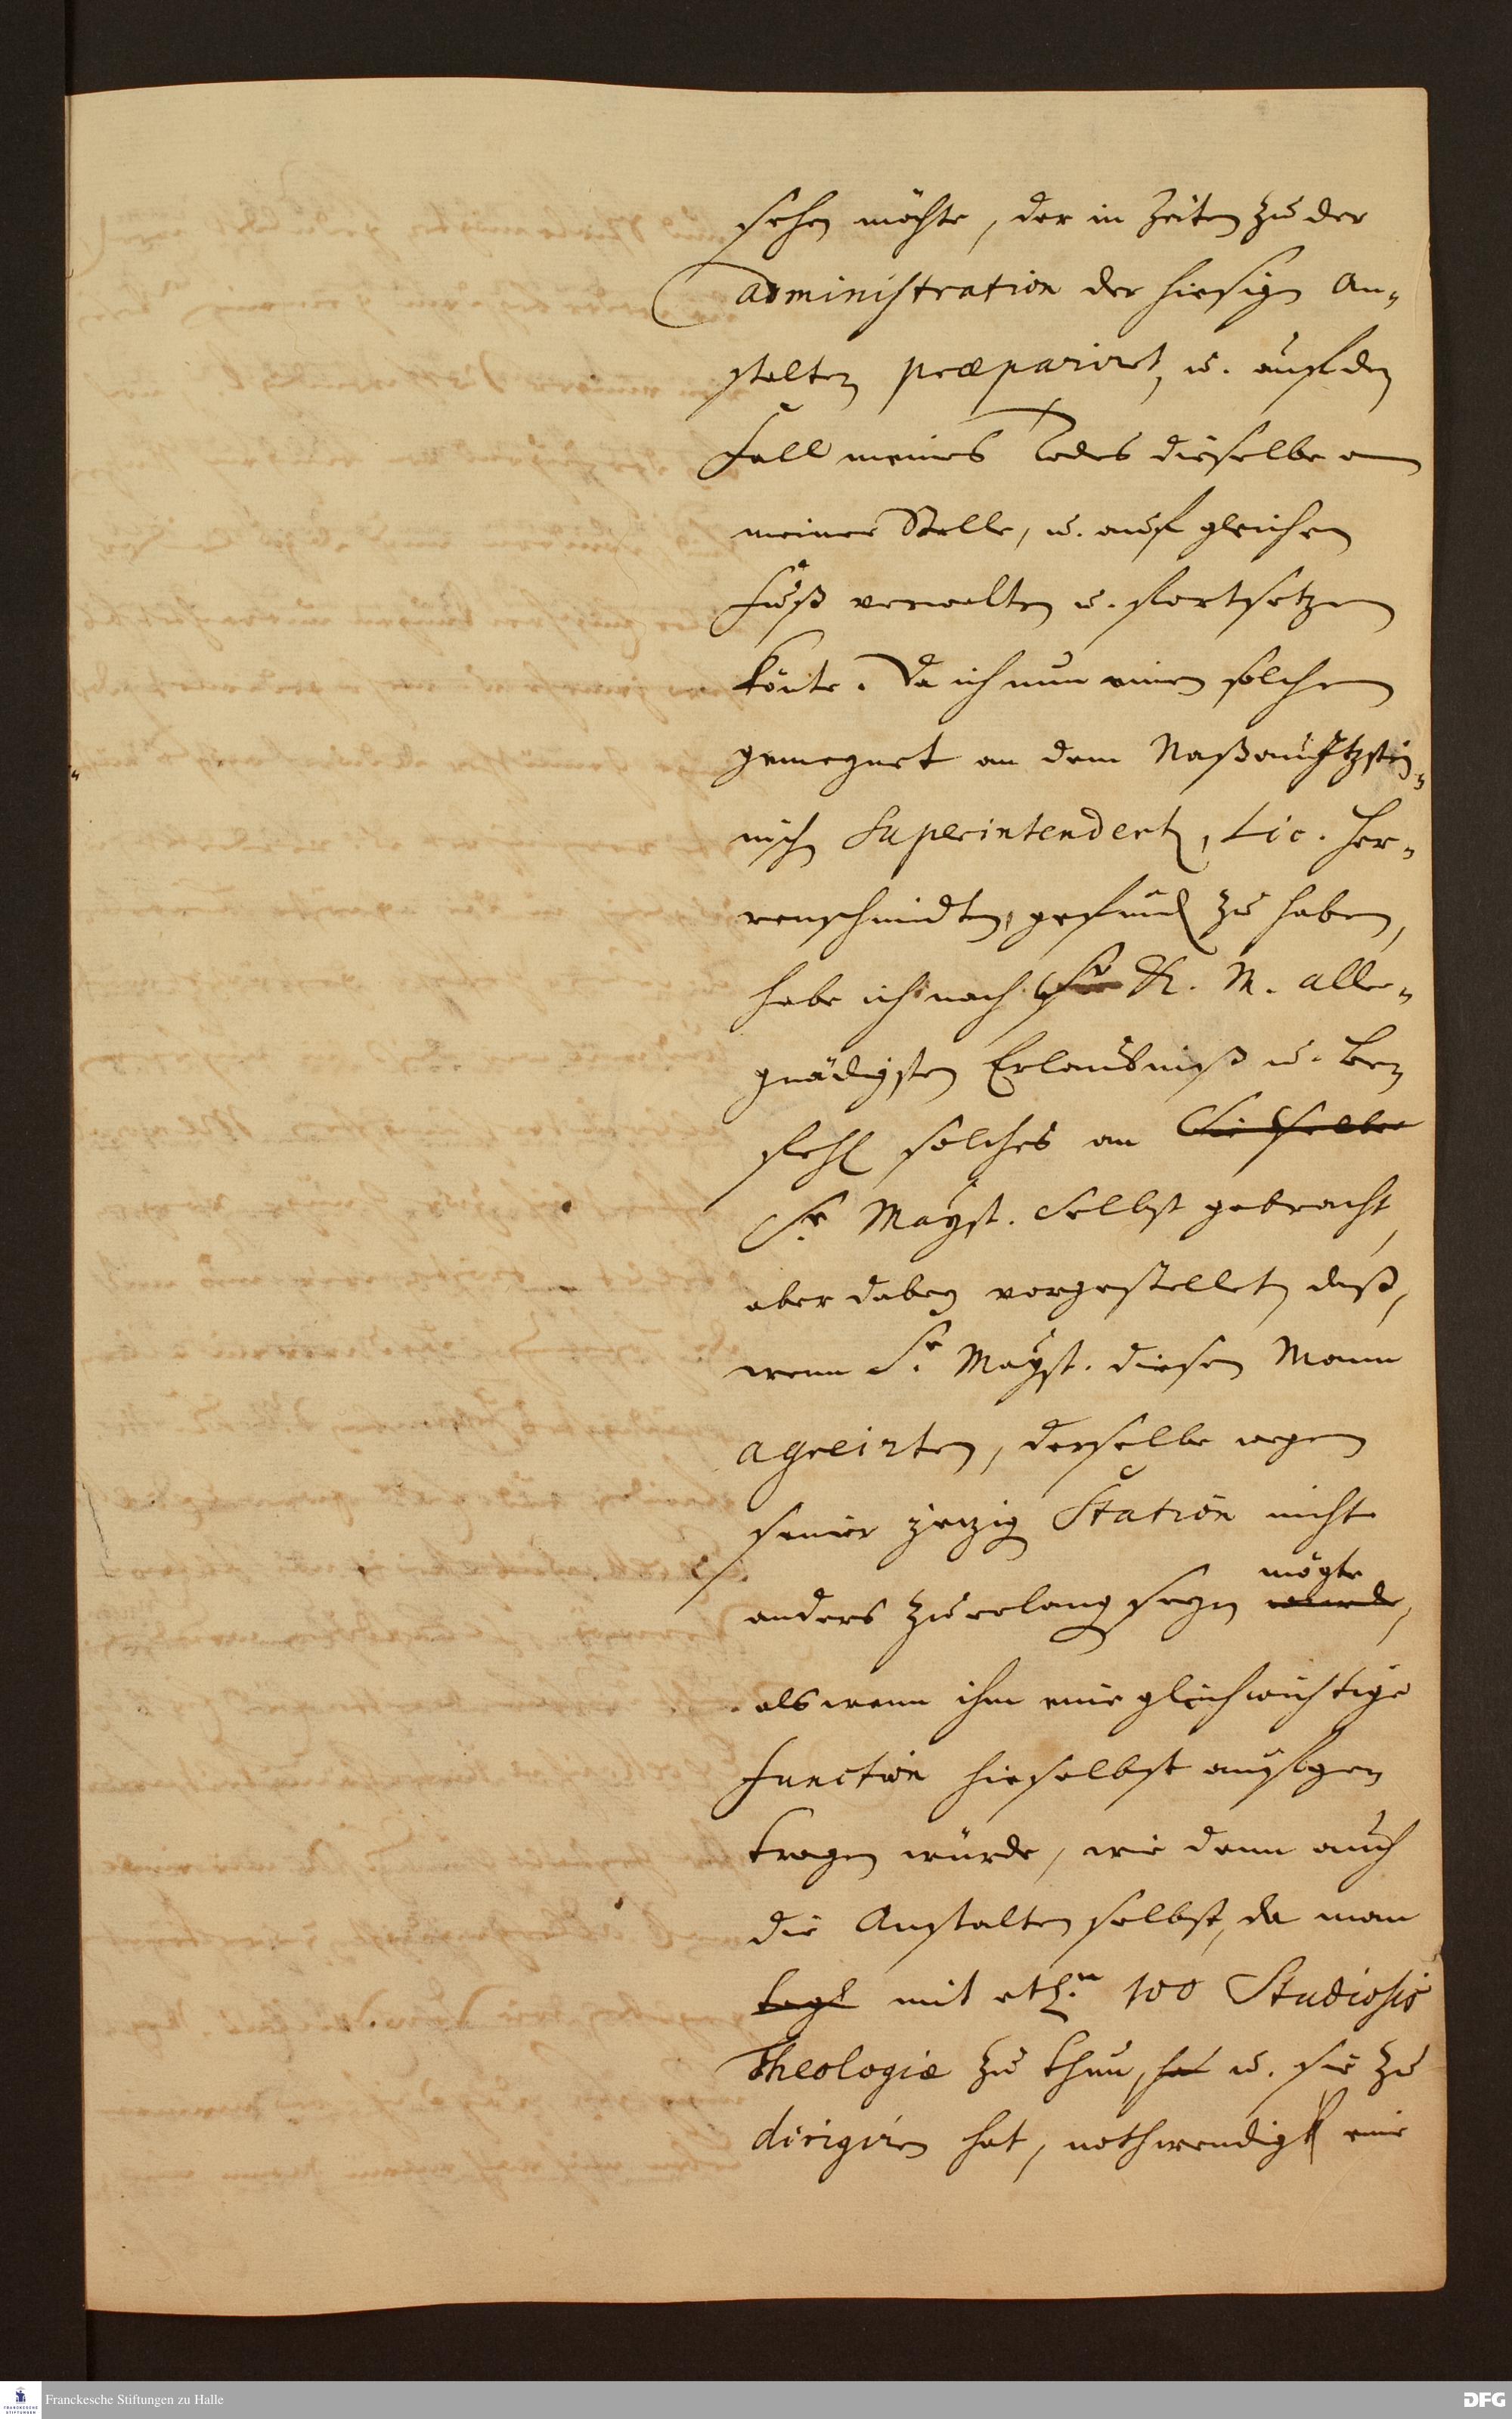 sehen möchte, der in Zeiten zu der
administration der hiesigen An-
stalten præpariret, u. auf den
Fall meines Todes dieselbe an
meiner Stelle, u. auf gleichen
Fuß verwalten u. fortsetzen
könte. Da ich nun einen solchen
gemeynet an dem Naßau Itzstei-
nisch Superintendenten, Lic. Her-
renschmidten, gefunden zu haben,
habe ich nach Sr K. M. aller-
gnädigsten Erlaubniß u. Be-
fehl solches an Sie Selber
Sr. Mayst. Selbst gebracht,
aber dabey vorgestellet, daß,
wenn Sr. Mayst. diesen Mann
agreirten, derselbe wegen
seiner jetzig Station nicht
mögte
anders zu erlang seyn würde,
als wenn ihm eine gleichwichtige
Function hieselbst aufge-
tragen würde, wie dann auch
die Anstalten selbst, da man
tägl mit etl.n 100 Studiosis
Theologiæ zu thun, hat u. sie zu
dirigiren hat, nothwendig eine
Franckesche Stiftungen zu Halle
FRANCKESCHE STIFTUNGEN
DFG